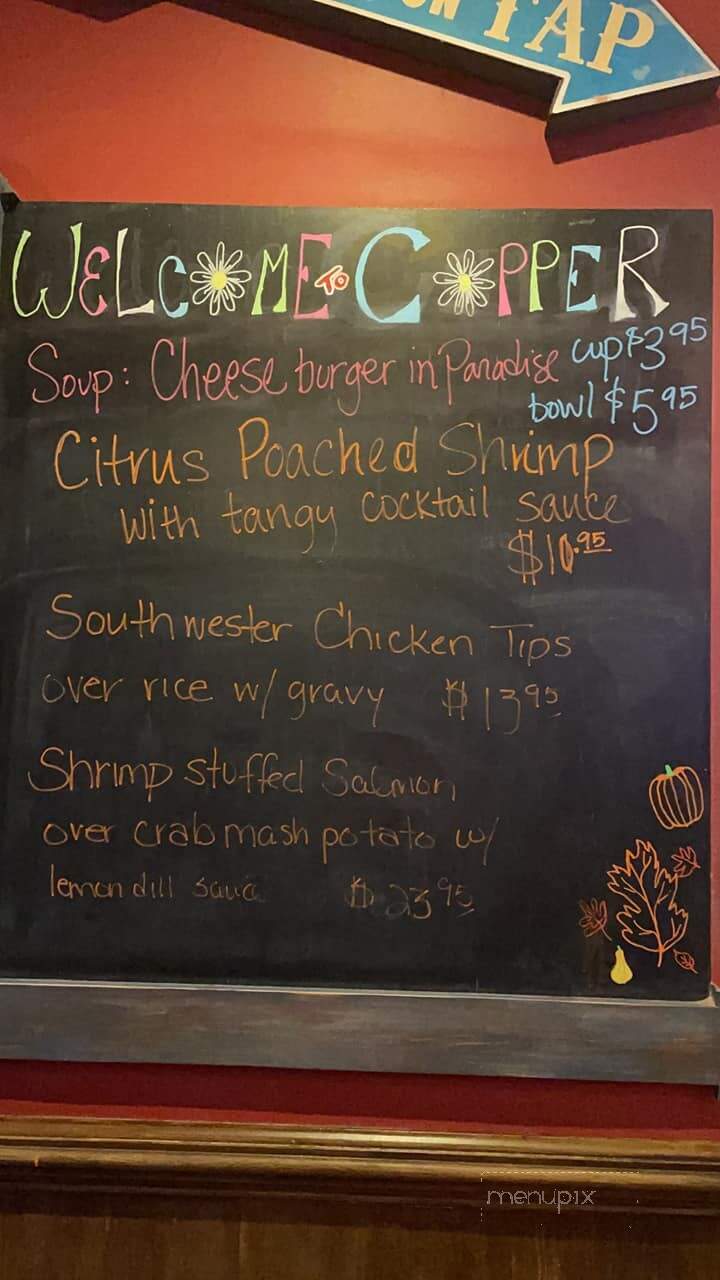 ON TAP
WELCOME TO COPPER
Soup: Cheeseburger in Paradise cup $3.95
bowl $5.95
Citrus Poached Shrimp
with tangy cocktail sauce
$10.95
Southwester Chicken Tips
over rice w/ gravy $13.95
Shrimp stuffed Salmon
over crab mash potato w/
lemon dill sauce $23.95
menupix